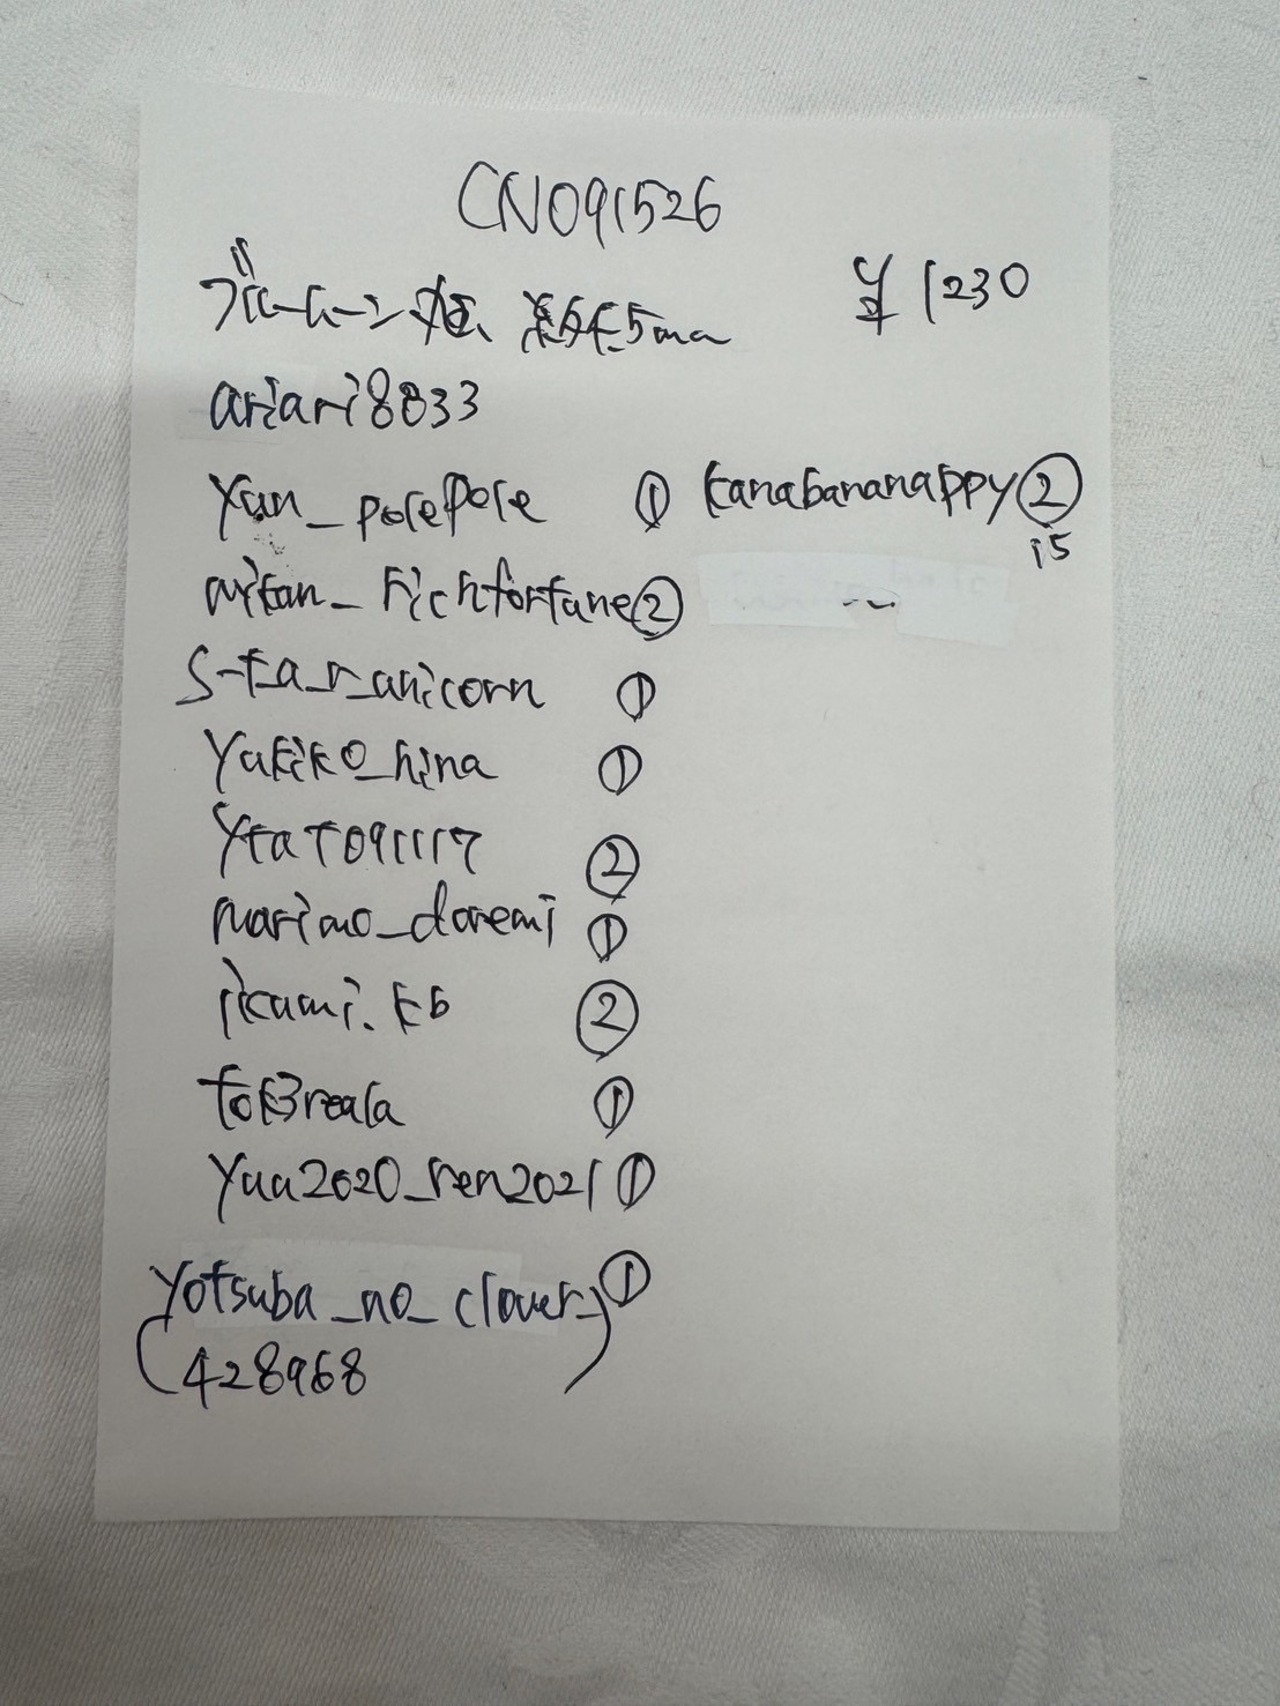 CN091526
ブルームーン ¥1230
ariari8833
yun_polepole ① kanabananappy②
15
mikan_richfortune②
s-t_a_r_unicorn ①
yukiko_hina ①
ytat091117 ②
marimo_doremi ①
ikumi.kb ②
tok3reala ①
yuu2020_ren2021 ①
yotsuba_no_clover_ ①
(428968)